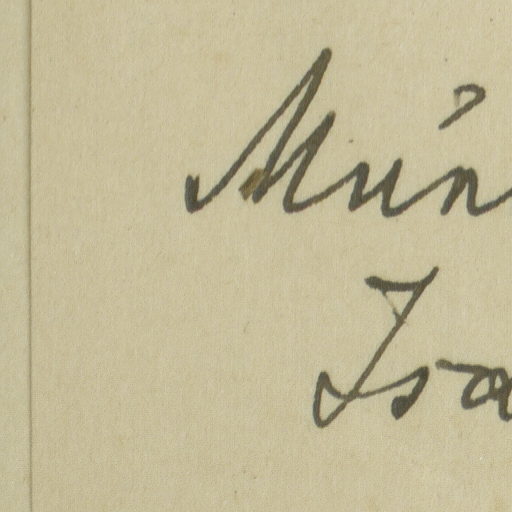 Mün
Isa